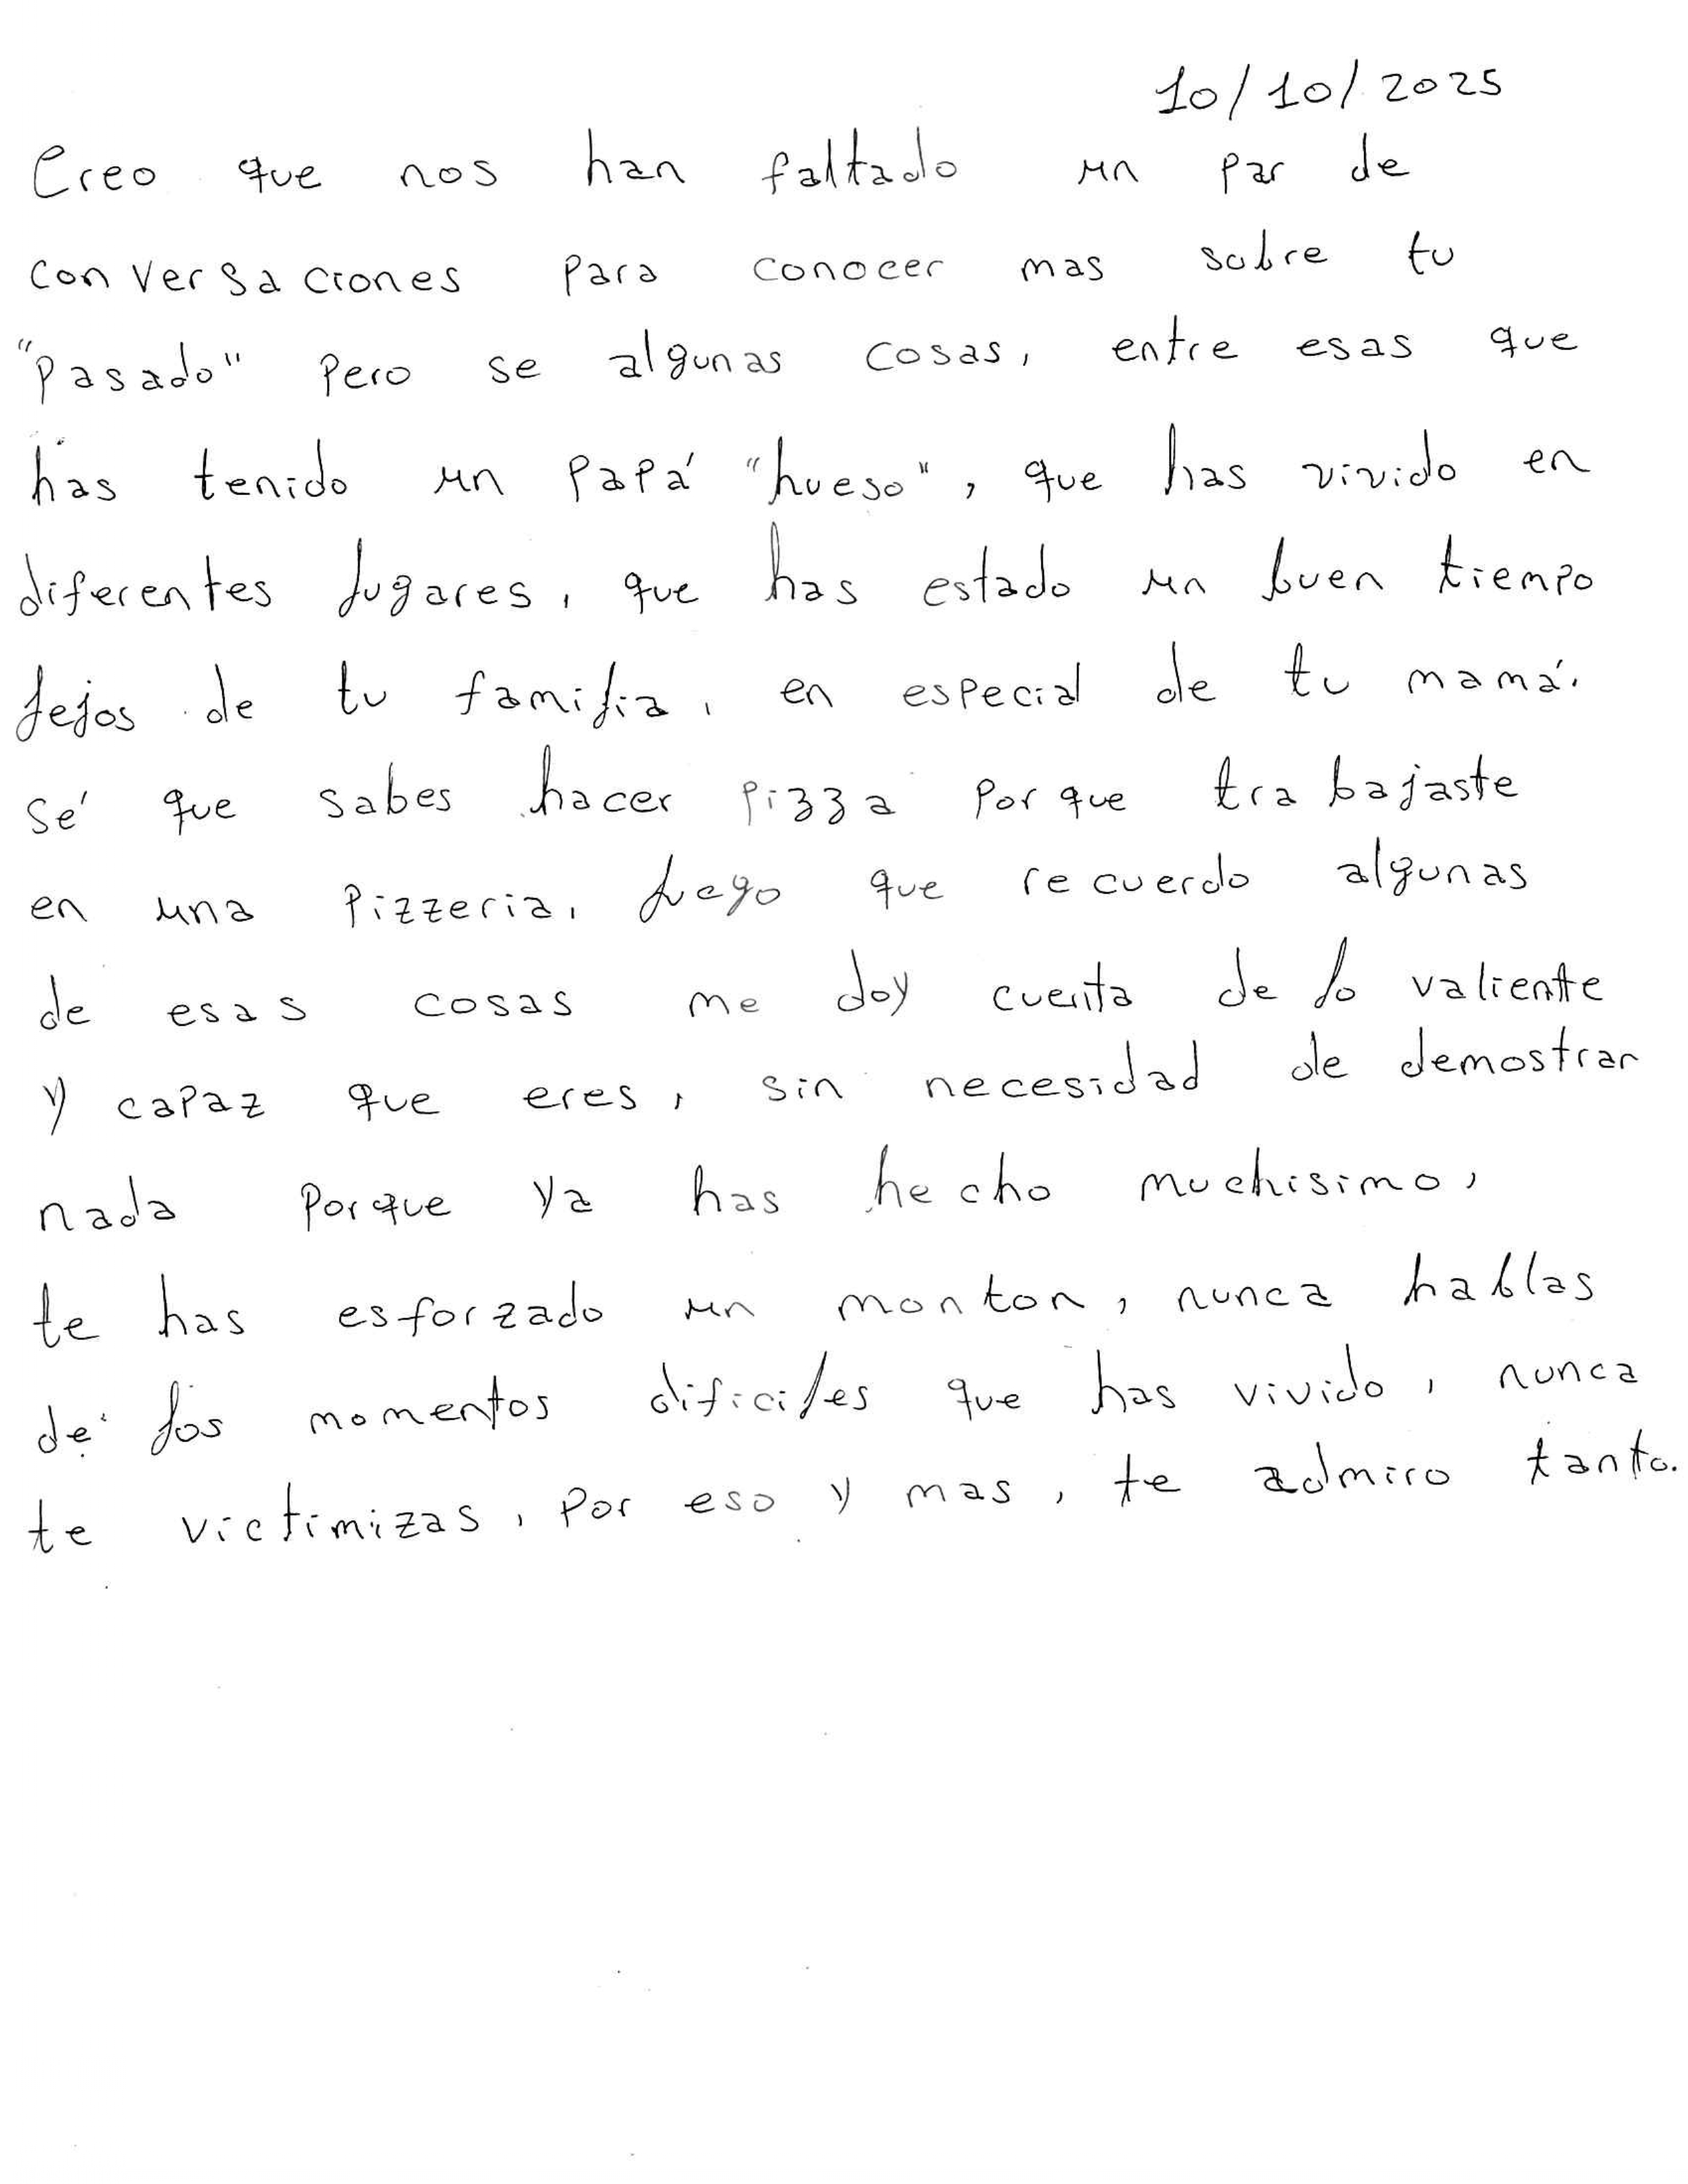 10/10/2025
Creo que nos han faltado un par de
conversaciones para conocer mas sobre tu
"pasado" pero se algunas cosas, entre esas que
has tenido un papá "hueso", que has vivido en
diferentes lugares, que has estado un buen tiempo
lejos de tu familia, en especial de tu mamá.
Sé que sabes hacer pizza porque trabajaste
en una pizzeria, luego que recuerdo algunas
de esas cosas me doy cuenta de lo valiente
y capaz que eres, sin necesidad de demostrar
nada porque ya has hecho muchisimo,
te has esforzado un monton, nunca hablas
de los momentos dificiles que has vivido, nunca
te victimizas, por eso y mas, te admiro tanto.